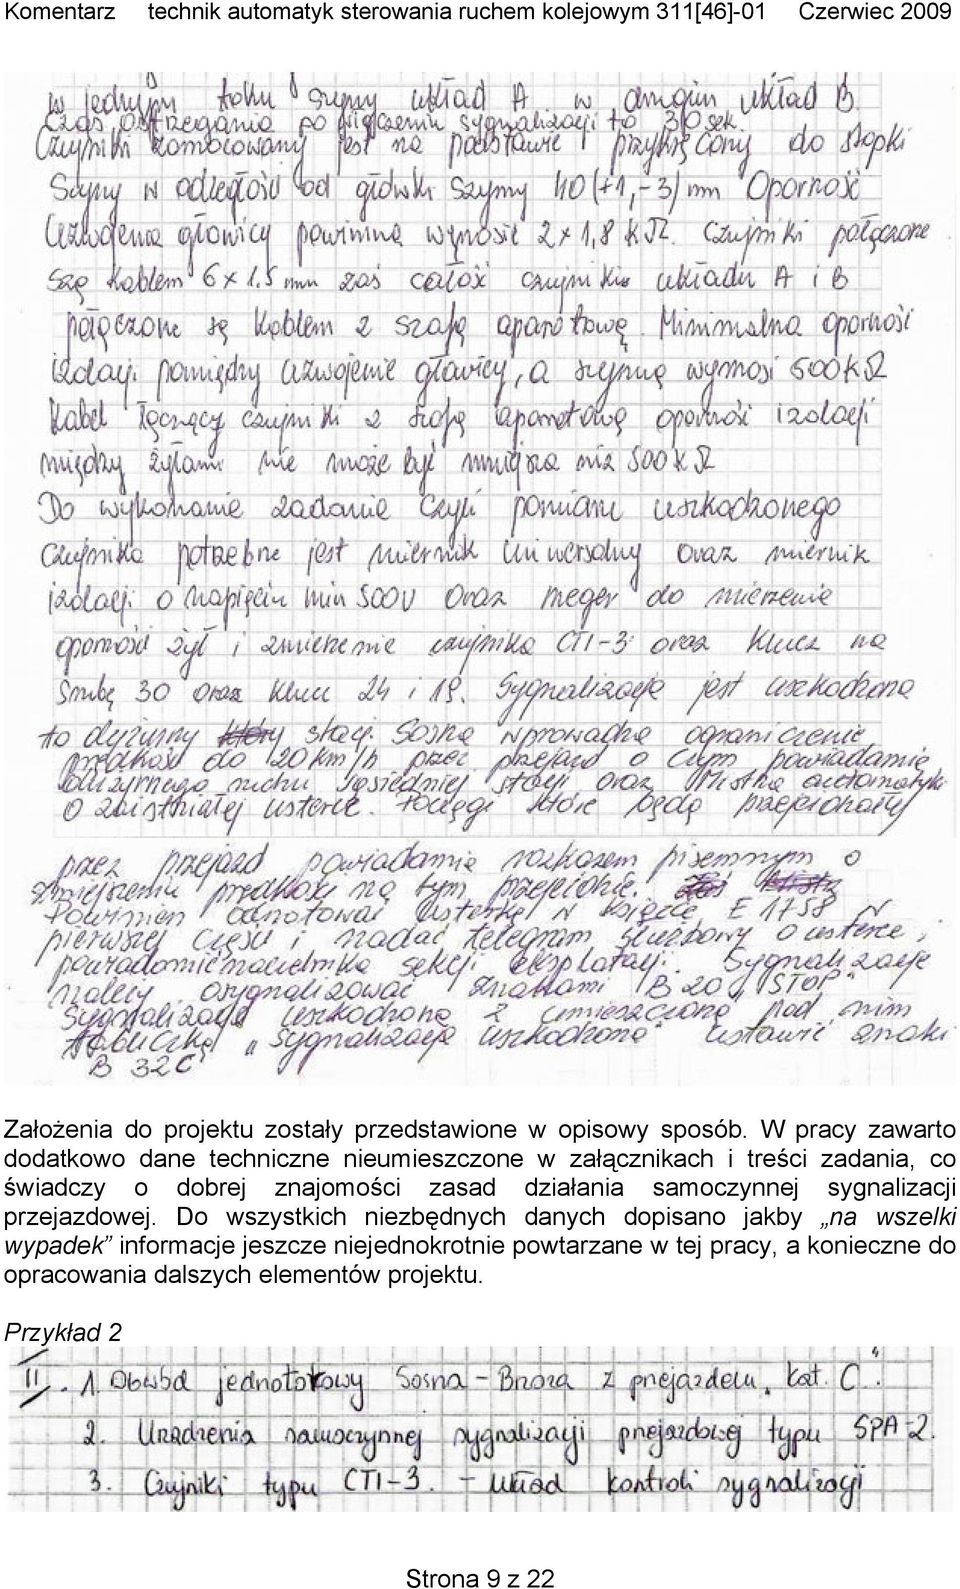 Komentarz technik automatyk sterowania ruchem kolejowym 311[46]-01 Czerwiec 2009
w jednym toku szyny układ A w drugim układ B.
Czas ostrzegania po włączeniu sygnalizacji to 30 sek.
Czujniki zamocowany jest na podstawie i przykręcony do stopki
Szyny w odległości od główki szyny 40 (+1, -3) mm Oporność
Uzwojenia głowicy powinna wynosić 2 x 1,8 kΩ. Czujniki połączone
Są kablem 6 x 1.5 mm zaś całość czujników układu A i B
połączone są kablem z szafą aparatową. Minimalna oporności
izolacji pomiędzy uzwojenie głowicy, a szyną wynosi 500kΩ
Kabel łączący czujniki z szafą aparatową oporność izolacji
między żyłami nie może być mniejsza niż 500kΩ
Do wykonanie zadanie czyli pomiaru uszkodzonego
czujnika potrzebne jest miernik uniwersalny oraz miernik
izolacji o napięciu min 500V oraz meger do mierzenie
oporności żył i zmierzenie czujnika CTI-3 oraz klucz na
śrubę 30 oraz klucz 24 i 19. Sygnalizacja jest uszkodzona
to dyżurny który stacji Sosna wprowadza ograniczenie
prędkość do 20 km/h przez przejazd o czym powiadamia
dyżurnego ruchu sąsiedniej stacji oraz Mistrza automatyki
o zaistniałej usterce. Pociągi które będą przejechały
przez przejazd powiadamia rozkazem pisemnym o
zmniejszeniu prędkość na tym przejeździe.
Powinien odnotować usterkę w książce E 1758 w
pierwszej części i nadać telegram służbowy o usterce,
powiadomić naczelnika sekcji eksploatacji. Sygnalizacje
należy osygnalizować znakami B 20 „STOP"
Sygnalizacja uszkodzona z umieszczoną pod nim
tabliczką „Sygnalizacja uszkodzona" ustawić znaki
B 32C
Założenia do projektu zostały przedstawione w opisowy sposób. W pracy zawarto
dodatkowo dane techniczne nieumieszczone w załącznikach i treści zadania, co
świadczy o dobrej znajomości zasad działania samoczynnej sygnalizacji
przejazdowej. Do wszystkich niezbędnych danych dopisano jakby „na wszelki
wypadek” informacje jeszcze niejednokrotnie powtarzane w tej pracy, a konieczne do
opracowania dalszych elementów projektu.
Przykład 2
II. 1. Obwód jednotorowy Sosna - Brzoza z przejazdem kat. C".
2. Urządzenia samoczynnej sygnalizacji przejazdowej typu SPA-2.
3. Czujniki typu CTI-3. - układ kontroli sygnalizacji
Strona 9 z 22